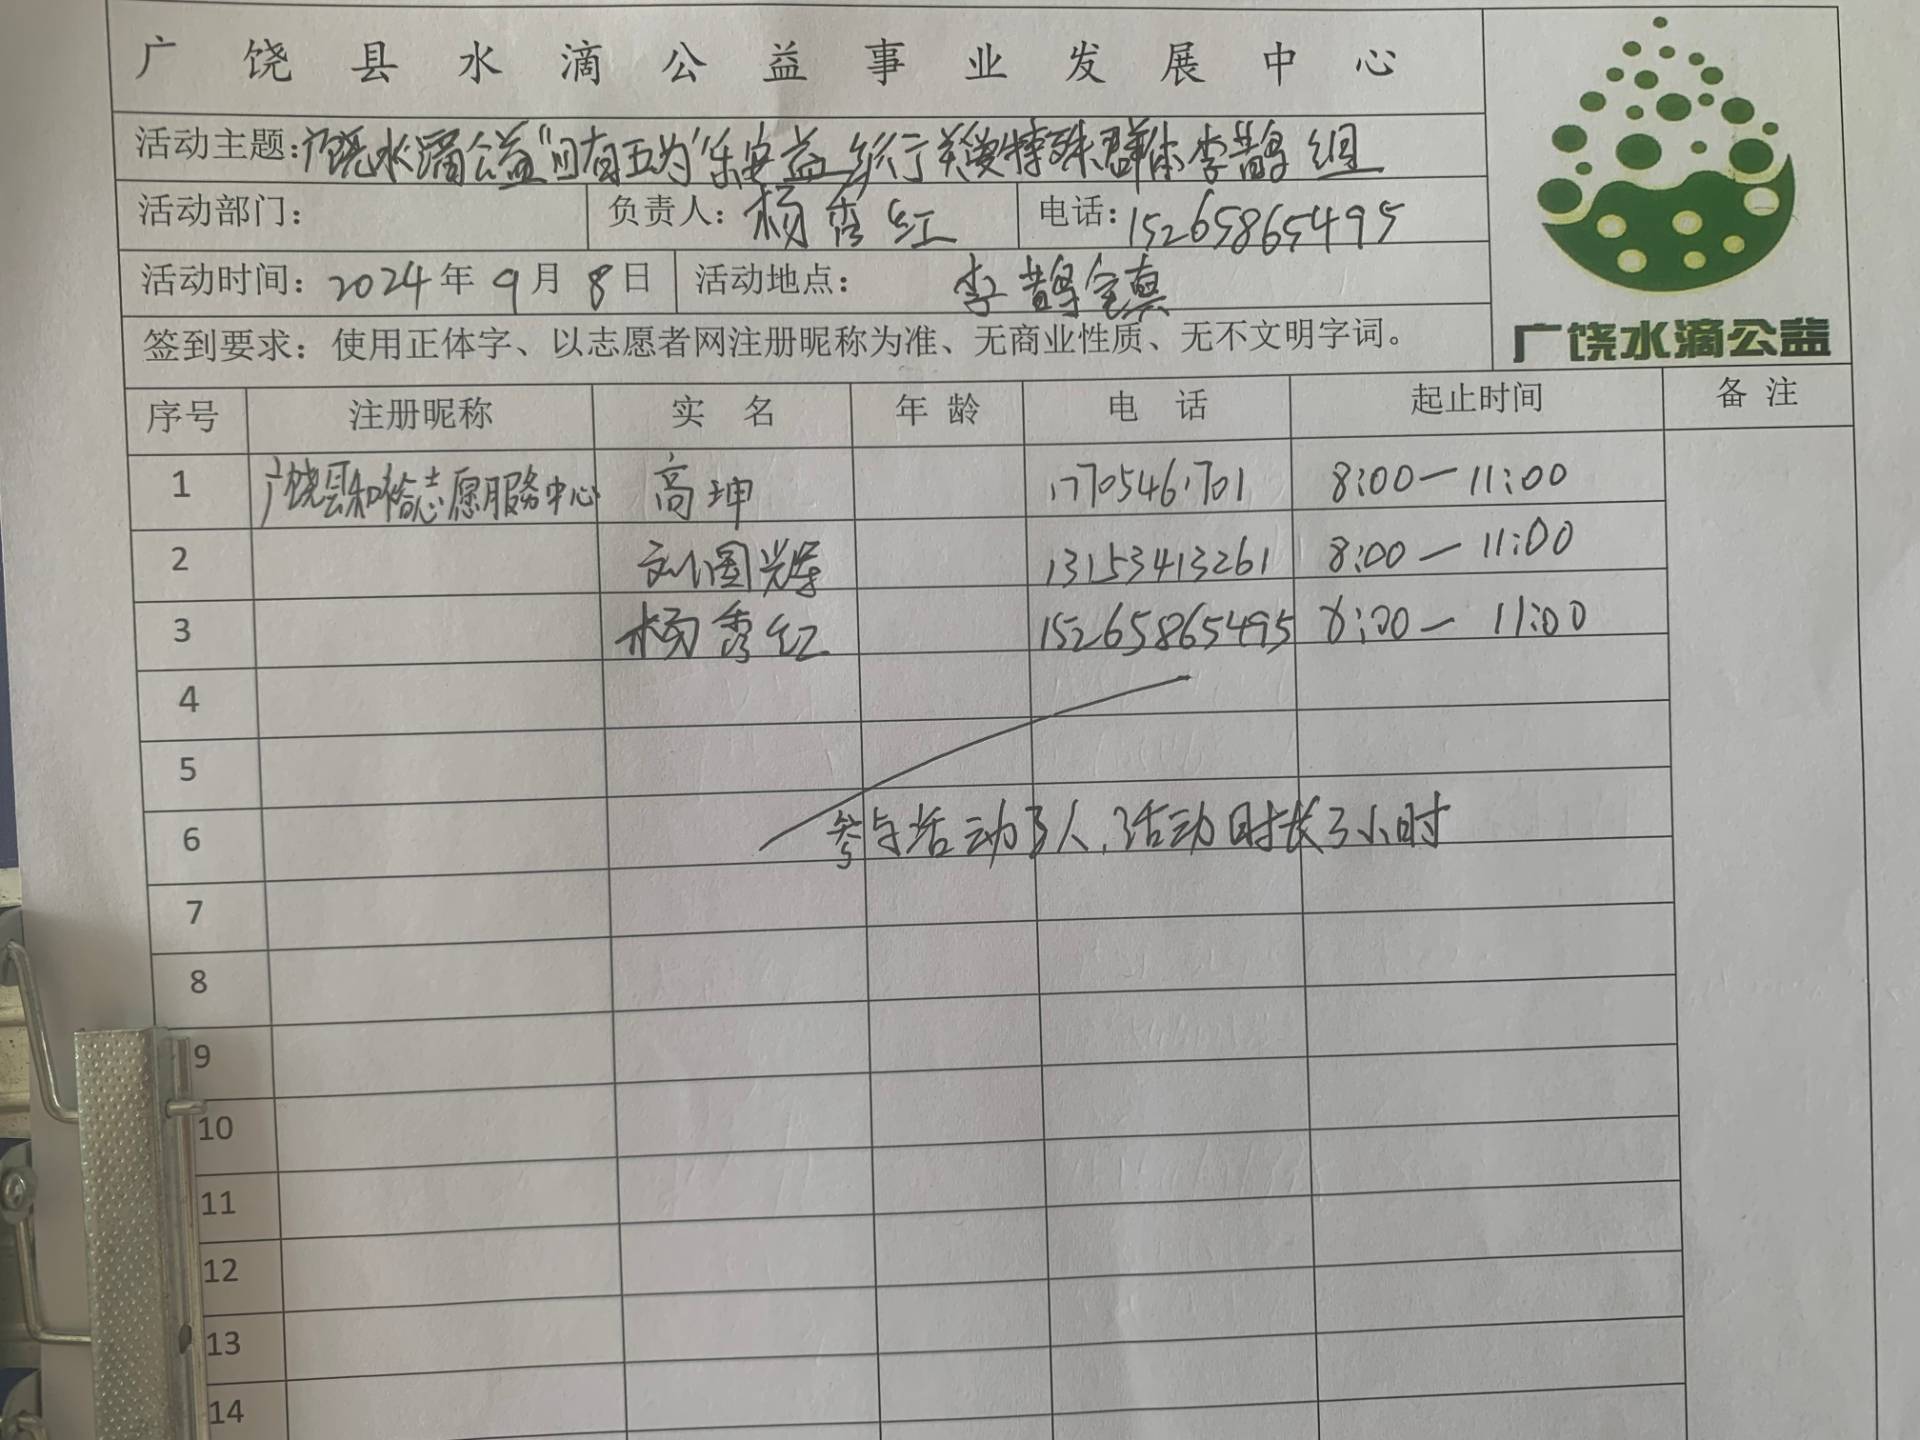 广饶县水滴公益事业发展中心
活动主题:广饶水滴公益"日有五为"乐安益行关爱特殊群体李鹊组
活动部门: 负责人:杨秀红 电话:15265865495
活动时间:2024年9月8日 活动地点: 李鹊全镇
签到要求:使用正体字、以志愿者网注册昵称为准、无商业性质、无不文明字词。
广饶水滴公益
序号 注册昵称 实名 年龄 电话 起止时间 备注
1 广饶县和裕志愿服务中心 高坤 17705461701 8:00-11:00
2 刘国辉 13153413261 8:00-11:00
3 杨秀红 15265865495 8:00-11:00
4
5
6 参与活动3人,活动时长3小时
7
8
9
10
11
12
13
14